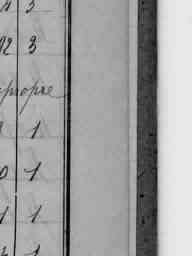 3
02 3
propre
1
0 1
1 1
1